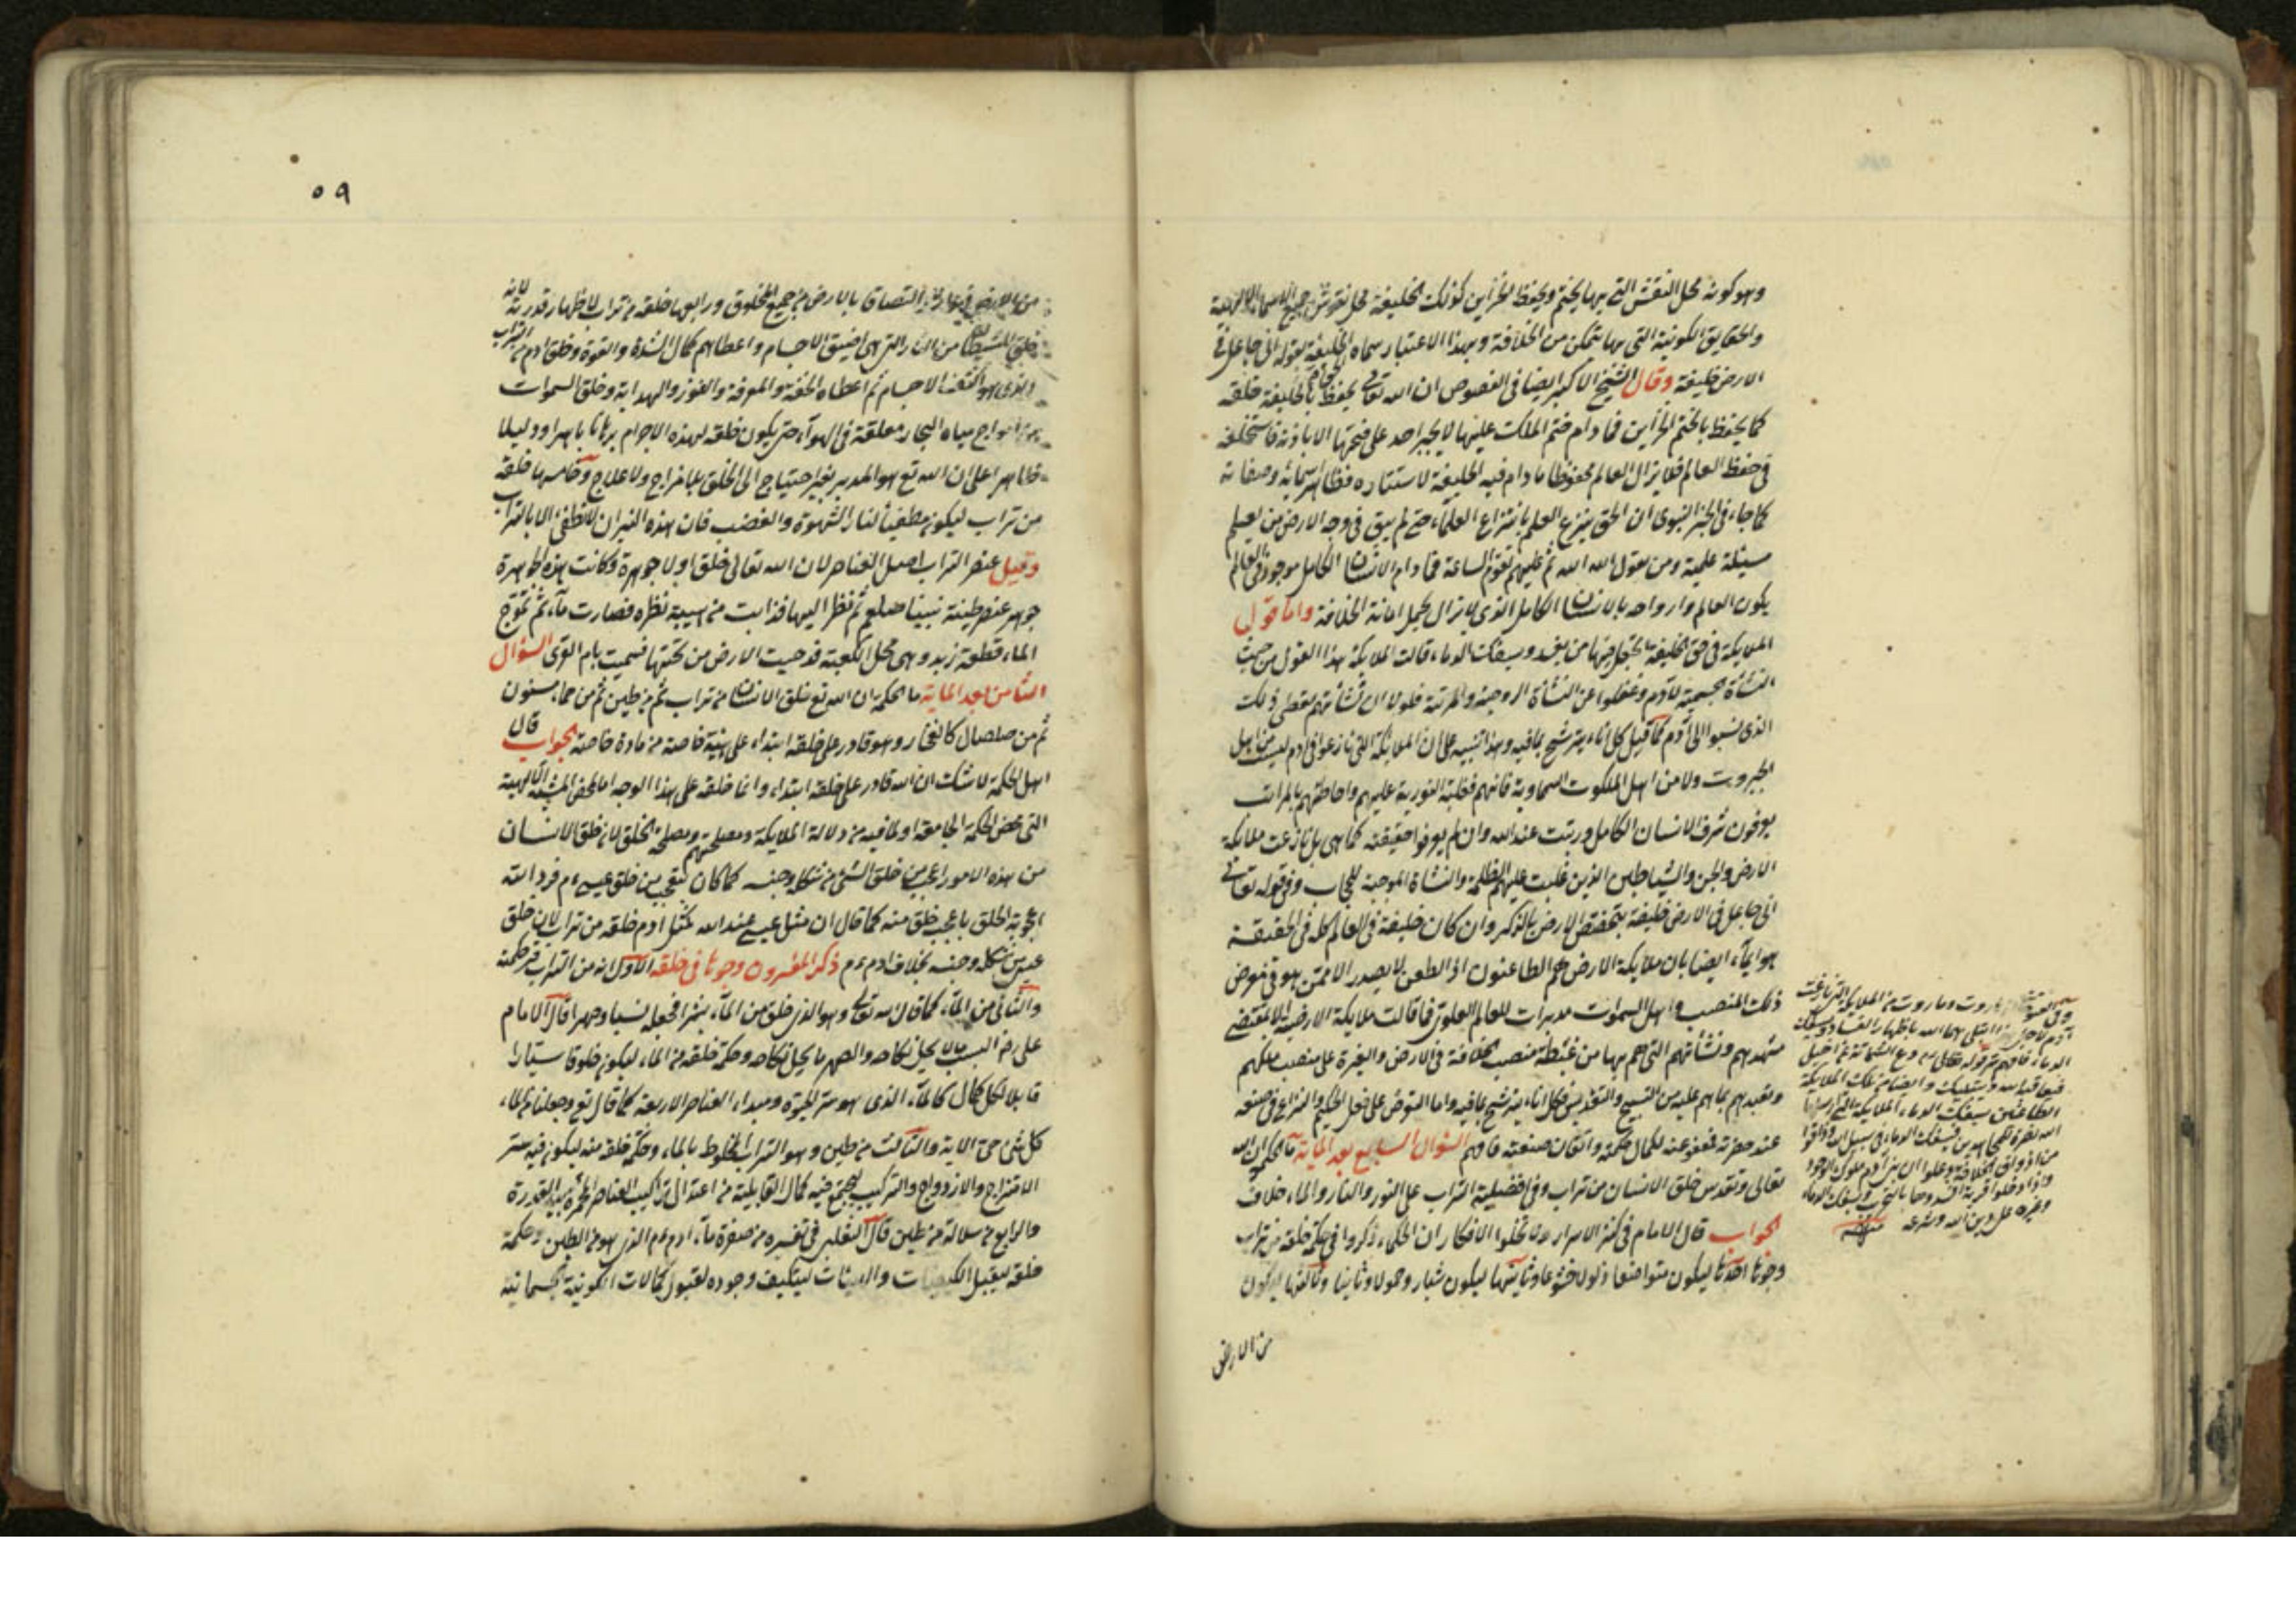 وهو كونه محل النقش التي بها يختم ويحفظ الخزاين كذلك الخليفة محل نقوش جميع الاسماء الالهية
والحقايق الكونية التي بها يتمكن من الخلافة وبهذا الاعتبار سماه الخليفة بقوله اني جاعل في
الارض خليفة وقال الشيخ الاكبر ايضا في الفصوص ان الله تعالى يحفظ بالخليفة خلقه
كما يحفظ بالختم الخزاين فما دام ختم الملك عليها لا يجسر احد على فتحها الا باذنه فاستخلفه
في حفظ العالم فلا يزال العالم محفوظا ما دام فيه الخليفة لاستتاره فظاهر اسمائه وصفاته
كما جاء في الخبر النبوى ان الحق ينزع العلم بانتزاع العلماء حتى لم يبق في وجه الارض من يعلم
مسئلة علمية ومن يقول الله الله ثم عليهم تقوم الساعة فما دام الانسان الكامل موجودا في العالم
يكون العالم وارواحه بالانسان الكامل الذى لا يزال يحمل امانة الخلافة واما قول
الملايكة في حق الخليفة اتجعل فيها من يفسد ويسفك الدماء قالت الملايكة هذا القول من حيث
النشأة الجسمية لآدم وغفلوا عن النشأة الروحية والمرتبة فلولا ان نشأتهم يعطى ذلك
الذى نسبوا الى آدم كما قيل كل اناء يترشح بما فيه وهذا تنبيه على ان الملايكة التي نازعوا في ادم ليست من اهل
الجبروت ولا من اهل الملكوت السماوية فانهم فغلبة النورية عليهم واحاطتهم بالمراتب
يعرفون شرف الانسان الكامل ورتبته عند الله وان لم يعرفوا حقيقته كما هي بل نازعت ملايكة
الارض والجن والشياطين الذين غلبت عليهم الظلمة والنشأة الموجبة للحجاب وفي قوله تعالى
اني جاعل في الارض خليفة بتخصيص الارض بالذكر وان كان خليفة في العالم كله في الحقيقة
هو ايماء ايضا بان ملايكة الارض هم الطاعنون اذ الطعن لا يصدر الا ممن هو في معرض
ذلك المنصب واهل السموات مدبرات للعالم العلوى فما قالت ملايكة الارضية الا لمقتضى
مشهدهم ونشأتهم التي هم بها من غبطة منصب الخلافة في الارض والغيرة على منصب ملكهم
وتعبدهم بما هم عليه من التسبيح والتقديس فكل اناء يترشح بما فيه واما التعرض على فعل الحكيم والنزاع في صنعه
عند حضرته فعفو عنه لكمال حكمته واتقان صنعته فافهم السؤال السابع بعد الماية ما الحكم ان الله
تعالى وتقدس خلق الانسان من تراب وفي افضلية التراب على النور والنار والماء خلاف
الجواب قال الامام في كنز الاسرار ولا تخلوا الافكار ان الحكماء ذكروا في حكمة خلقه من تراب
وجوها احدها ليكون متواضعا ذلولا خشوعا وثانيها ليكون ستارا وحمولا وثالثها ليكون
من الارض
آدم لاجل ابتلى بهما الله باظهار الفساد وسفك
الطاعنين بسفك الدماء الملايكة التي ارسلها
الله نصرة للمجاهدين فسفك الدماء في سبيل الله
وغيره على دين الله وشرعه منه
٥٩
التصاقا بالارض من جميع المخلوق ورابعها خلقه من تراب لاظهار قدرته لانه
خلق الشيطان من النار التي هي اضيئ الاجسام واعطاهم كمال الشدة والقوة وخلق ادم من التراب
الذى هو اكثف الاجسام ثم اعطاه المحبة والمعرفة والفوز والهداية وخلق السموات
من امواج مياه البحار معلقة في الهوآء حتى يكون خلقه لهذه الاجرام برهانا باهرا ودليلا
ظاهرا على ان الله تع هو المدبر بغير احتياج الى الخلق بلا مزاج ولا علاج وخامسها خلقه
من تراب ليكون مطفيا لنار الشهوة والغضب فان هذه النيران لا تطفئ الا بالتراب
وقيل عنصر التراب اصل العناصر لان الله تعالى خلق اولا جوهرة وكانت هذه الجوهرة
جوهر عنصر طينة نبينا صلعم ثم نظر اليها فذابت من هيبة نظره فصارت ماء ثم تموج
الماء قطعة زبد وهي محل الكعبة فدحيت الارض من تحتها فسميت بام القرى السؤال
الثامن بعد الماية ما الحكمة ان الله تع خلق الانسان من تراب ثم من طين ثم من حماء مسنون
ثم من صلصال كالفخار وهو قادر على خلقه ابتداء على هيئة خاصة من مادة خاصة الجواب قال
اهل الحكمة لا شك ان الله قادر على خلقه ابتداء وانما خلقه على هذا الوجه اما لمحض المشيئة الالهية
التي محض الحكمة الجامعة او لما فيه من دلالة الملايكة ومصلحتهم ومصلحة الخلق لان خلق الانسان
من هذه الامور اعجب من خلق الشئ من شكله وجنسه كما كان تعجب من خلق عيسى عم فرد الله
اعجوبة الخلق باعجب خلق منه كما قال ان مثل عيسى عند الله كمثل ادم خلقه من تراب لان خلق
عيسى من شكله وجنسه بخلاف ادم عم ذكر المفسرون وجوها في خلقه الاول انه من التراب فحكمته
والثاني من المآء كما قال الله تعالى وهو الذى خلق من المآء بشرا فجعله نسبا وصهرا قال الامام
على رض النسب ما لا يحل نكاحه والصهر ما يحل نكاحه وحكمة خلقه من الماء ليكون خلوقا ستارا
قابلا لكل كمال كالمآء الذى هو سر الحيوة ومبداء العناصر الاربعة كما قال تع وجعلنا من الماء
كل شئ حى الاية والثالث من طين وهو التراب المخلوط بالماء وحكمة خلقه منه ليكون فيه ستر
الامتزاج والازدواج والتركيب ليجتمع فيه كمال القابلية من اعتدال تراكيب العناصر المخمرة بيد القدرة
والرابع من سلالة من طين قال الثعلبى في تفسيره من صفوة ماء ادم عم الذى هو من الطين وحكمة
خلقه ليقبل الكيفيات والهيئات ليتكيف وجوده لقبول كمالات الكونية الجسمانية